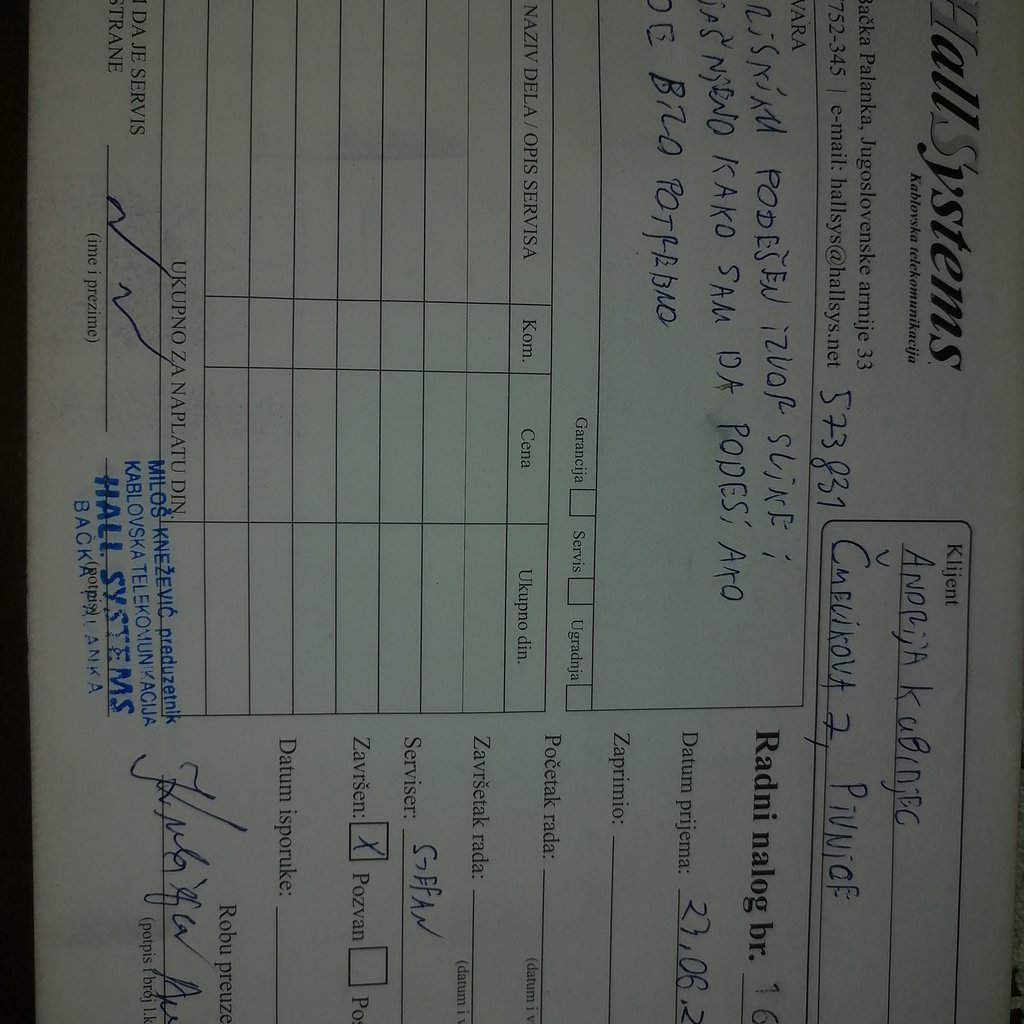 HallSystems
Kablovska telekomunikacija
Bačka Palanka, Jugoslovenske armije 33
752-345 | e-mail: hallsys@hallsys.net 573831
Klijent
ANDRIJA KUBINJEC
ČMELIKOVA 7, PIVNICE
VARA
PODEŠEN IZVOR SLIKE I
KAKO SAM DA PODESI AKO
BILO POTREBNO
Garancija Servis Ugradnja
NAZIV DELA / OPIS SERVISA Kom. Cena Ukupno din.
UKUPNO ZA NAPLATU DIN.
I DAJE SERVIS
STRANE
(ime i prezime)
(potpis)
MILOŠ KNEŽEVIĆ preduzetnik
KABLOVSKA TELEKOMUNIKACIJA
HALL SYSTEMS
BAČKA PALANKA
Radni nalog br. 16
Datum prijema: 27.06.2
Zaprimio:
Početak rada:
(datum i v
Završetak rada:
(datum i v
Serviser: STEFAN
Završen: X Pozvan Pos
Datum isporuke:
Robu preuze
(potpis i broj l.k